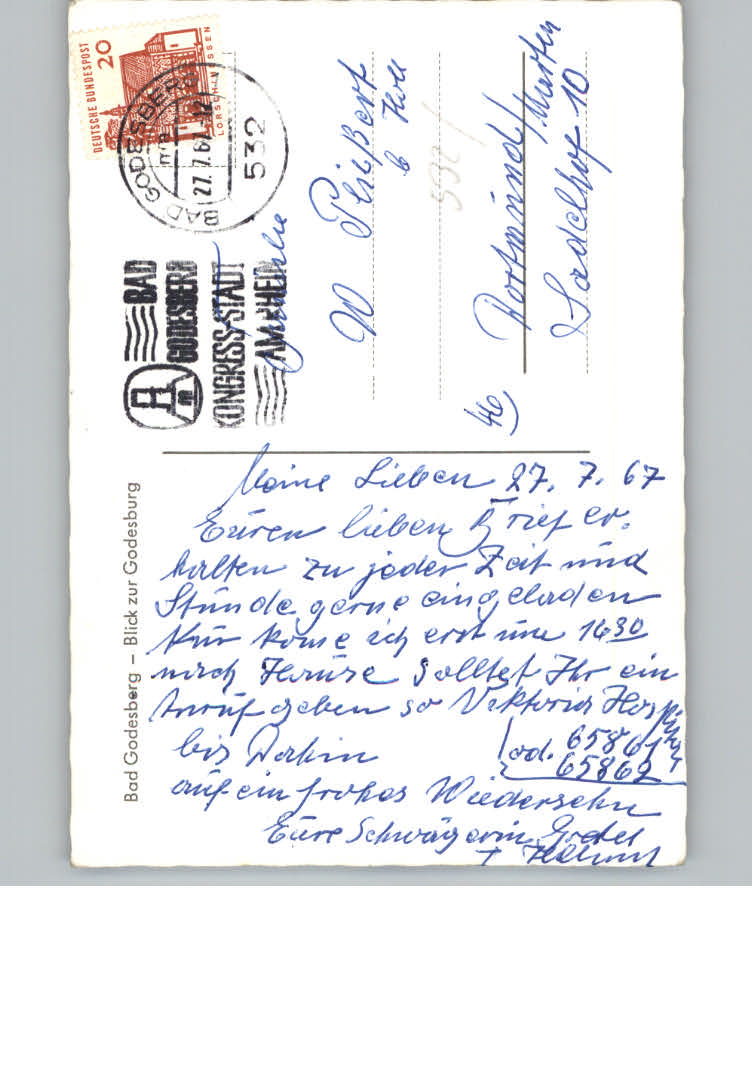 DEUTSCHE BUNDESPOST
20
LORSCH HESSEN
BAD GODESBERG
27.7.67
532
BAD
GODESBERG
KONGRESS-STADT
AM RHEIN
W
b
Dortmund/Marten
Sadelhof 10
46
Bad Godesberg – Blick zur Godesburg
Meine Lieben 27. 7. 67
Euren lieben Brief er-
halten zu jeder Zeit und
Stunde gerne eingeladen
Nur kome ich erst um 16 30
nach Hause Solltet Ihr ein
Anruf geben so Viktoria Hospital
bis Dahin
65861
od. 65862
auf ein frohes Wiedersehn
Eure Schwägerin Gretel
+ Helmut